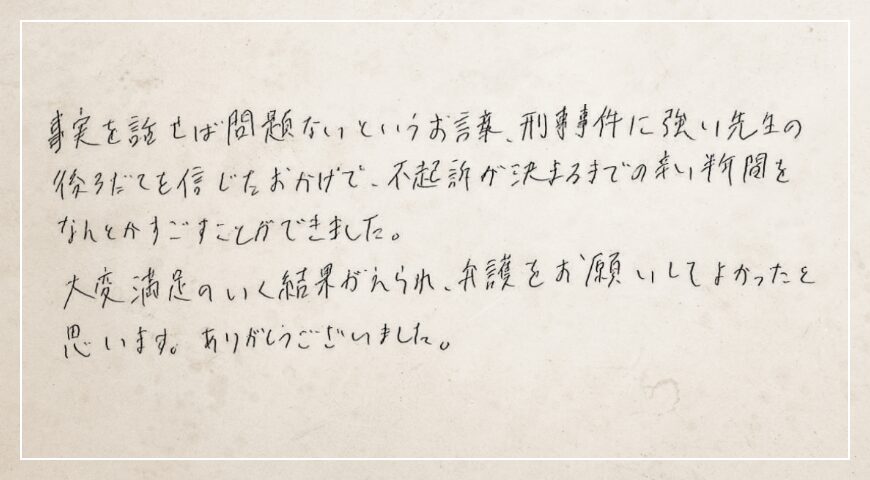 事実を話せば問題ないというお言葉、刑事事件に強い先生の
後ろだてを信じたおかげで、不起訴が決まるまでの辛い半年間を
なんとかすごすことができました。
大変満足のいく結果がえられ、弁護をお願いしてよかったと
思います。ありがとうございました。